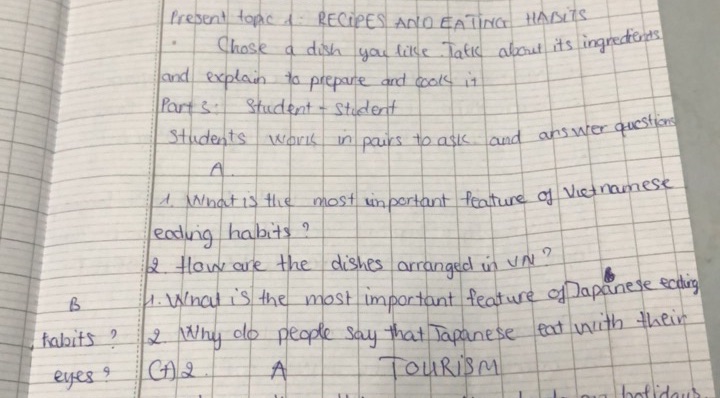 Present topic 1: RECIPES AND EATING HABITS
. Chose a dish you like. Talk about its ingredients
and explain to prepare and cook it
Part 3: Student - Student
Students work in pairs to ask and answer questions
A.
1. What is the most important feature of Vietnamese
eating habits?
2. How are the dishes arranged in VN?
B 1. What is the most important feature of Japanese eating
habits? 2. Why do people say that Japanese eat with their
eyes? 2. A TOURISM
holidays